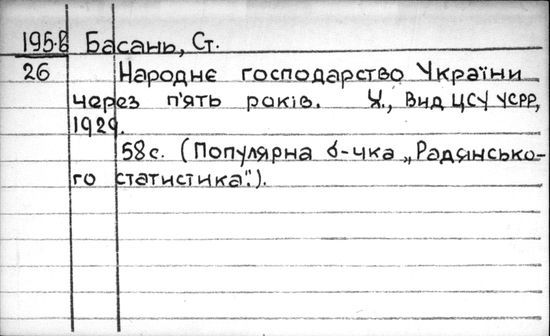 195.в Басань, Ст.
26 Народнє господарство України
через п'ять років. Х., Вид ЦСУ УСРР,
1929.
58с. (Популярна б-чка „Радянсько-
го статистика".).